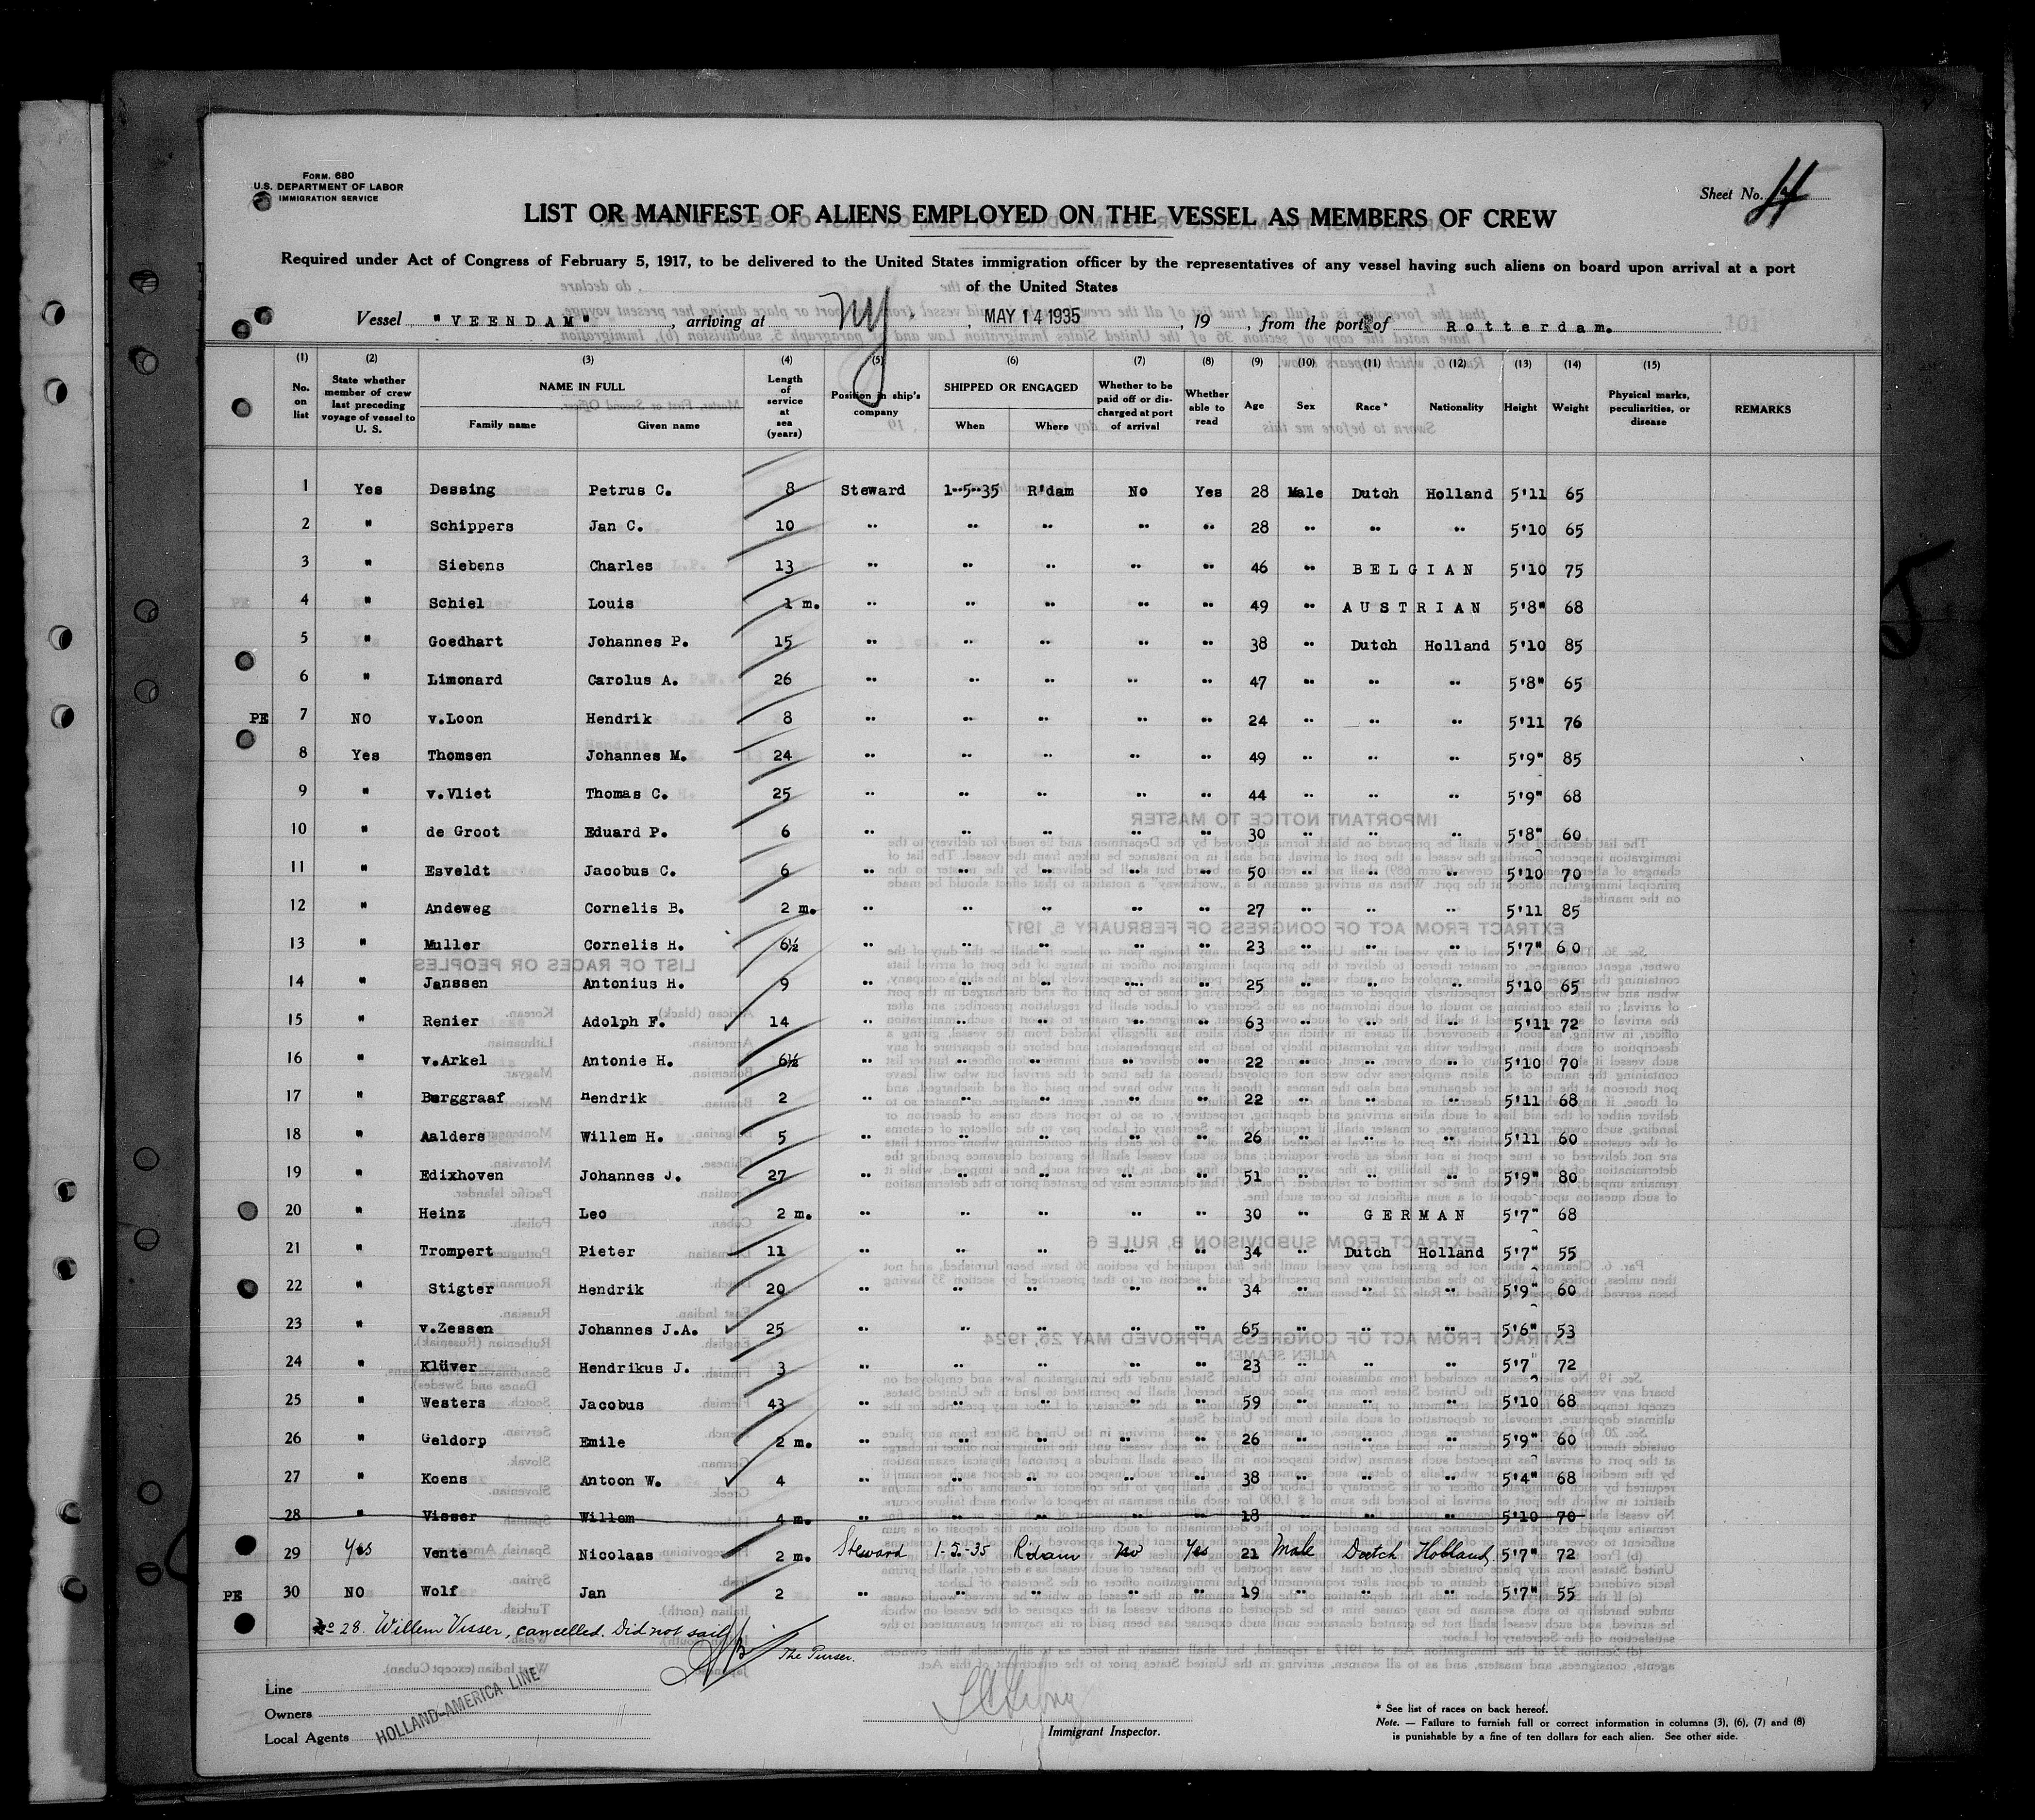 FORM. 680
U.S. DEPARTMENT OF LABOR
IMMIGRATION SERVICE
Sheet No.
LIST OR MANIFEST OF ALIENS EMPLOYED ON THE VESSEL AS MEMBERS OF CREW
Required under Act of Congress of February 5, 1917, to be delivered to the United States immigration officer by the representatives of any vessel having such aliens on board upon arrival at a port
of the United States
Vessel "VEENDAM", arriving at NY., MAY 14 1935, 19 , from the port of Rotterdam.
(1) (2) (3) (4) (5) (6) (7) (8) (9) (10) (11) (12) (13) (14) (15)
No. on list | State whether member of crew last preceding voyage of vessel to U. S. | NAME IN FULL Family name Given name | Length of service at sea (years) | Position in ship's company | SHIPPED OR ENGAGED When Where | Whether to be paid off or discharged at port of arrival | Whether able to read | Age | Sex | Race * | Nationality | Height | Weight | Physical marks, peculiarities, or disease | REMARKS
1 Yes Dessing Petrus C. 8 Steward 1-5-35 R'dam No Yes 28 Male Dutch Holland 5'11 65
2 " Schippers Jan C. 10 " " " " " 28 " " " 5'10 65
3 " Siebens Charles 13 " " " " " 46 " BELGIAN 5'10 75
4 " Schiel Louis 1 m. " " " " " 49 " AUSTRIAN 5'8" 68
5 " Goedhart Johannes P. 15 " " " " " 38 " Dutch Holland 5'10 85
6 " Limonard Carolus A. 26 " " " " " 47 " " " 5'8" 65
PE 7 NO v.Loon Hendrik 8 " " " " " 24 " " " 5'11 76
8 Yes Thomsen Johannes M. 24 " " " " " 49 " " " 5'9" 85
9 " v.Vliet Thomas C. 25 " " " " " 44 " " " 5'9" 68
10 " de Groot Eduard P. 6 " " " " " 30 " " " 5'8" 60
11 " Esveldt Jacobus C. 6 " " " " " 50 " " " 5'10 70
12 " Andeweg Cornelis B. 2 m. " " " " " 27 " " " 5'11 85
13 " Muller Cornelis H. 6½ " " " " " 23 " " " 5'7" 60
14 " Janssen Antonius H. 9 " " " " " 25 " " " 5'10 65
15 " Renier Adolph F. 14 " " " " " 63 " " " 5'11 72
16 " v.Arkel Antonie H. 6½ " " " " " 22 " " " 5'10 70
17 " Berggraaf Hendrik 2 " " " " " 22 " " " 5'11 68
18 " Aalders Willem H. 5 " " " " " 26 " " " 5'11 60
19 " Edixhoven Johannes J. 27 " " " " " 51 " " " 5'9" 80
20 " Heinz Leo 2 m. " " " " " 30 " GERMAN 5'7" 68
21 " Trompert Pieter 11 " " " " " 34 " Dutch Holland 5'7" 55
22 " Stigter Hendrik 20 " " " " " 34 " " " 5'9" 60
23 " v.Zessen Johannes J.A. 25 " " " " " 65 " " " 5'6" 53
24 " Klüver Hendrikus J. 3 " " " " " 23 " " " 5'7" 72
25 " Westers Jacobus 43 " " " " " 59 " " " 5'10 68
26 " Geldorp Emile 2 m. " " " " " 26 " " " 5'9" 60
27 " Koens Antoon W. 4 " " " " " 38 " " " 5'4" 68
28 " Visser Willem 4 m. " " " " " 18 " " " 5'10 70
29 Yes Vente Nicolaas 2 m. Steward 1-5-35 R'dam No Yes 21 Male Dutch Holland 5'7" 72
PE 30 NO Wolf Jan 2 " " " " " 19 " " " 5'7" 55
No 28. Willem Visser, cancelled. Did not sail
The Purser.
Line
Owners
Local Agents
HOLLAND-AMERICA LINE
Immigrant Inspector.
* See list of races on back hereof.
Note. — Failure to furnish full or correct information in columns (3), (6), (7) and (8)
is punishable by a fine of ten dollars for each alien. See other side.